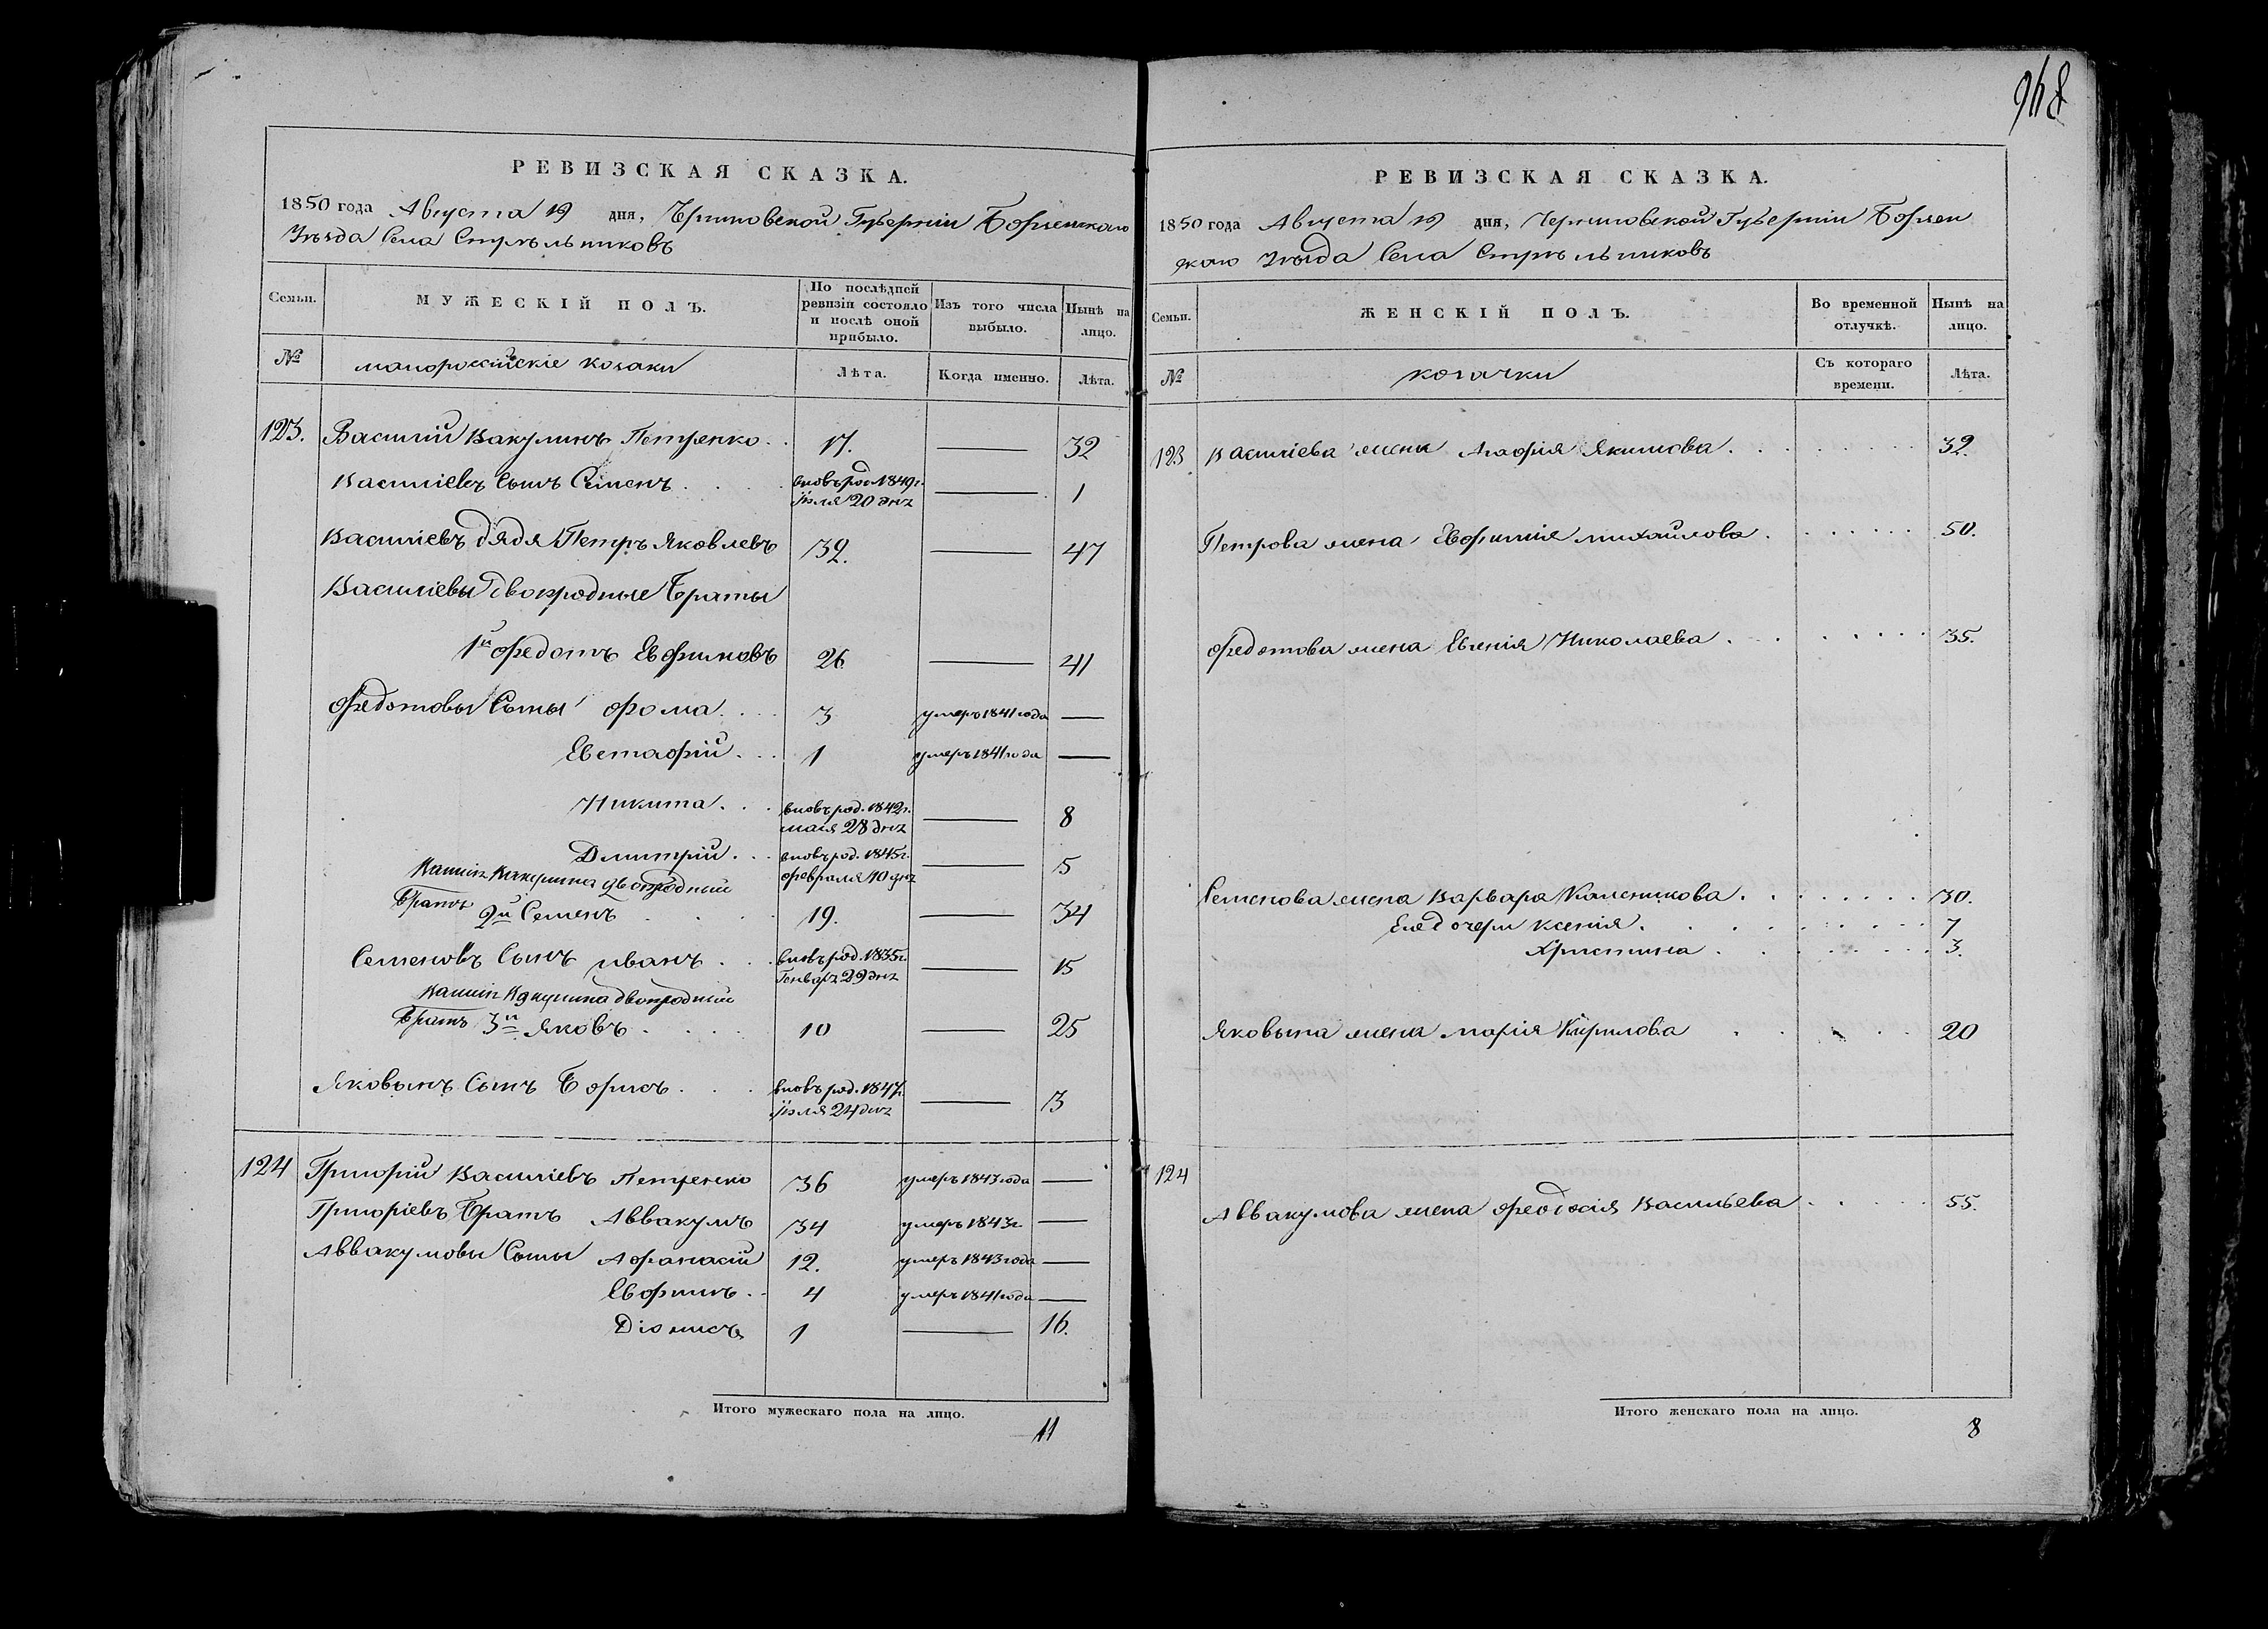 968
РЕВИЗСКАЯ СКАЗКА.
1850 года Августа 19 дня, Черниговской Губерніи Борзенскаго
Уѣзда Села Стрѣльниковъ
Семьи. МУЖЕСКІЙ ПОЛЪ. По послѣдней ревизіи состояло и послѣ оной прибыло. Изъ того числа выбыло. Нынѣ на лицо.
№ малороссійскіе козаки Лѣта. Когда именно. Лѣта.
123. Василій Вакулинъ Петренко 17. — 32
Василіевъ Сынъ Семенъ вновь род. 1849 г. Іюля 20 дня — 1
Василіевъ дядя Петръ Яковлевъ 32. — 47
Василіевы двоюродные Браты
1й Федотъ Евфимовъ 26 — 41
Федотовы Сыны Фома 3 умеръ 1841 года —
Евстафій 1 умеръ 1841 года —
Никита вновь род. 1842 г. маія 28 дня — 8
Дмитрій вновь род. 1845 г. февраля 10 дня — 5
Василія Вакулина двоюродный
Братъ 2й Семенъ 19. — 34
Семеновъ Сынъ Иванъ вновь род. 1835 г. Генваря 29 дня — 15
Василія Вакулина двоюродный
Братъ 3й Яковъ 10 — 25
Яковынъ Сынъ Борисъ вновь род. 1847 г. Іюля 24 дня — 3
124 Григорій Василіевъ Петренко 36 умеръ 1843 года —
Григоріевъ Братъ Аввакумъ 34 умеръ 1843 г —
Аввакумовы Сыны Афанасій 12. умеръ 1843 года —
Евфимъ 4 умеръ 1841 года —
Діонисъ 1 — 16.
Итого мужескаго пола на лицо.
11
РЕВИЗСКАЯ СКАЗКА.
1850 года Августа 19 дня, Черниговской Губерніи Борзен
скаго Уѣзда Села Стрѣльниковъ
Семьи. ЖЕНСКІЙ ПОЛЪ. Во временной отлучкѣ. Нынѣ на лицо.
№ козачки Съ котораго времени. Лѣта.
123 Василіева жена Агафія Якимова 32
Петрова жена Евфимія Михайлова 50.
Федотова жена Евгенія Николаева 35.
Семенова жена Варвара Каленикова 30.
Ея дочери Ксенія 7
Христина 3.
Яковына жена Марія Кирилова 20
124
Аввакумова жена Феодосія Васильева 55.
Итого женскаго пола на лицо.
8